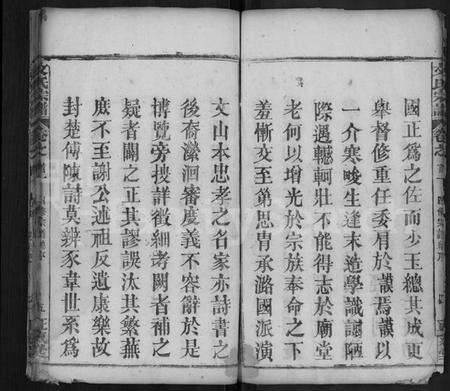 國正為之佐而少王總其成更
舉督修重任委肩於讓焉讓以
一介寒畯生逢末造學識譾陋
際遇轗軻壯不能得志於廟堂
老何以增光於宗族奉命之下
羞慚交至第思胄承潞國派演
文山本忠孝之名家亦詩書之
後裔瀠洄審慶義不容辭於是
博覽旁搜詳徵細考闕者補之
疑者闕之正其謬誤汰其繁蕪
庶不至謝公述祖反遺康樂故
封楚傅陳詩莫辨豕韋世系為